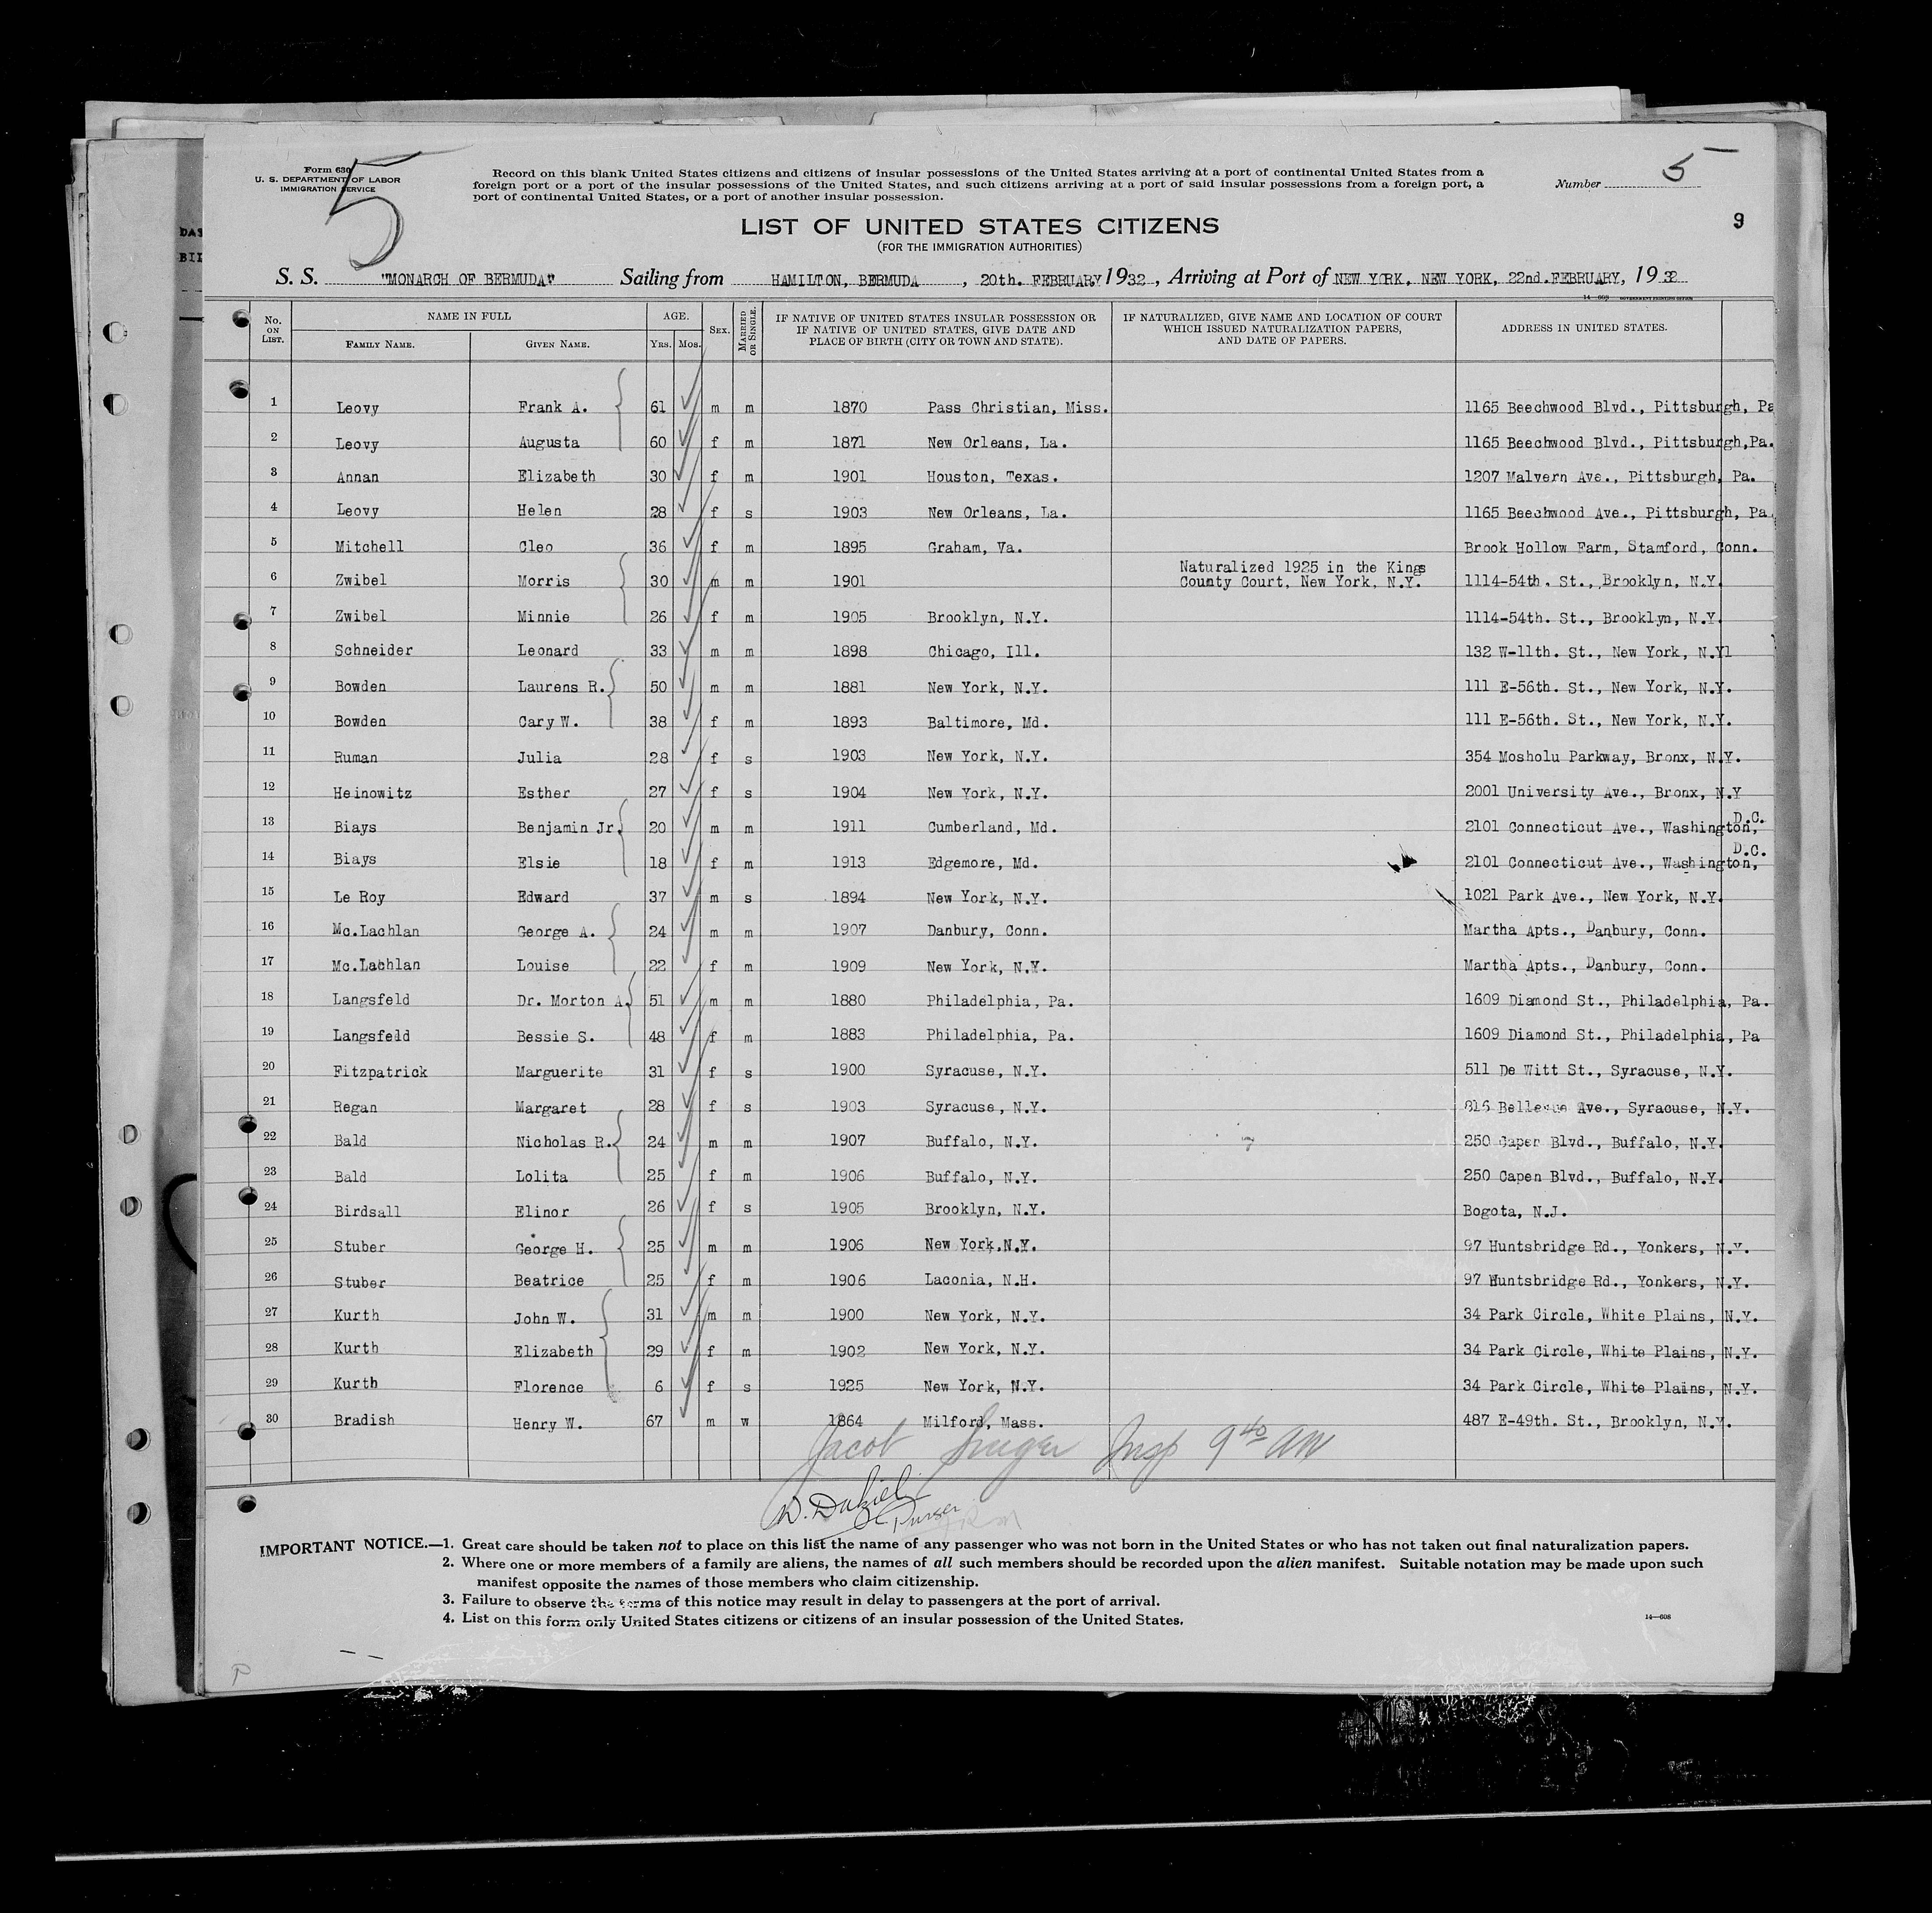 Form 630
U. S. DEPARTMENT OF LABOR
IMMIGRATION SERVICE
5
Record on this blank United States citizens and citizens of insular possessions of the United States arriving at a port of continental United States from a
foreign port or a port of the insular possessions of the United States, and such citizens arriving at a port of said insular possessions from a foreign port, a
port of continental United States, or a port of another insular possession.
Number 5
9
LIST OF UNITED STATES CITIZENS
(FOR THE IMMIGRATION AUTHORITIES)
S. S. "MONARCH OF BERMUDA" Sailing from HAMILTON, BERMUDA, 20th. FEBRUARY 1932, Arriving at Port of NEW YORK, NEW YORK, 22nd. FEBRUARY, 1932
14-608 GOVERNMENT PRINTING OFFICE
No. ON LIST. NAME IN FULL FAMILY NAME. GIVEN NAME. AGE. YRS. MOS. SEX. MARRIED OR SINGLE. IF NATIVE OF UNITED STATES INSULAR POSSESSION OR IF NATIVE OF UNITED STATES, GIVE DATE AND PLACE OF BIRTH (CITY OR TOWN AND STATE). IF NATURALIZED, GIVE NAME AND LOCATION OF COURT WHICH ISSUED NATURALIZATION PAPERS, AND DATE OF PAPERS. ADDRESS IN UNITED STATES.
1 Leovy Frank A. 61 m m 1870 Pass Christian, Miss. 1165 Beechwood Blvd., Pittsburgh, Pa
2 Leovy Augusta 60 f m 1871 New Orleans, La. 1165 Beechwood Blvd., Pittsburgh,Pa.
3 Annan Elizabeth 30 f m 1901 Houston, Texas. 1207 Malvern Ave., Pittsburgh, Pa.
4 Leovy Helen 28 f s 1903 New Orleans, La. 1165 Beechwood Ave., Pittsburgh, Pa.
5 Mitchell Cleo 36 f m 1895 Graham, Va. Brook Hollow Farm, Stamford, Conn.
6 Zwibel Morris 30 m m 1901 Naturalized 1925 in the Kings County Court, New York, N.Y. 1114-54th. St., Brooklyn, N.Y.
7 Zwibel Minnie 26 f m 1905 Brooklyn, N.Y. 1114-54th. St., Brooklyn, N.Y.
8 Schneider Leonard 33 m m 1898 Chicago, Ill. 132 W-11th. St., New York, N.Yl
9 Bowden Laurens R. 50 m m 1881 New York, N.Y. 111 E-56th. St., New York, N.Y.
10 Bowden Cary W. 38 f m 1893 Baltimore, Md. 111 E-56th. St., New York, N.Y.
11 Ruman Julia 28 f s 1903 New York, N.Y. 354 Mosholu Parkway, Bronx, N.Y.
12 Heinowitz Esther 27 f s 1904 New York, N.Y. 2001 University Ave., Bronx, N.Y
13 Biays Benjamin Jr. 20 m m 1911 Cumberland, Md. 2101 Connecticut Ave., Washington, D.C.
14 Biays Elsie 18 f m 1913 Edgemore, Md. 2101 Connecticut Ave., Washington, D.C.
15 Le Roy Edward 37 m s 1894 New York, N.Y. 1021 Park Ave., New York, N.Y.
16 Mc.Lachlan George A. 24 m m 1907 Danbury, Conn. Martha Apts., Danbury, Conn.
17 Mc.Lachlan Louise 22 f m 1909 New York, N.Y. Martha Apts., Danbury, Conn.
18 Langsfeld Dr. Morton A. 51 m m 1880 Philadelphia, Pa. 1609 Diamond St., Philadelphia, Pa.
19 Langsfeld Bessie S. 48 f m 1883 Philadelphia, Pa. 1609 Diamond St., Philadelphia, Pa
20 Fitzpatrick Marguerite 31 f s 1900 Syracuse, N.Y. 511 De Witt St., Syracuse, N.Y.
21 Regan Margaret 28 f s 1903 Syracuse, N.Y. 816 Bellevue Ave., Syracuse, N.Y.
22 Bald Nicholas R. 24 m m 1907 Buffalo, N.Y. 250 Capen Blvd., Buffalo, N.Y.
23 Bald Lolita 25 f m 1906 Buffalo, N.Y. 250 Capen Blvd., Buffalo, N.Y.
24 Birdsall Elinor 26 f s 1905 Brooklyn, N.Y. Bogota, N.J.
25 Stuber George H. 25 m m 1906 New York.N.Y. 97 Huntsbridge Rd., Yonkers, N.Y.
26 Stuber Beatrice 25 f m 1906 Laconia, N.H. 97 Huntsbridge Rd., Yonkers, N.Y.
27 Kurth John W. 31 m m 1900 New York, N.Y. 34 Park Circle, White Plains, N.Y.
28 Kurth Elizabeth 29 f m 1902 New York, N.Y. 34 Park Circle, White Plains, N.Y.
29 Kurth Florence 6 f s 1925 New York, N.Y. 34 Park Circle, White Plains, N.Y.
30 Bradish Henry W. 67 m w 1864 Milford, Mass. 487 E-49th. St., Brooklyn, N.Y.
Jacob Insp 9 40 AM
Purser
IMPORTANT NOTICE.—1. Great care should be taken not to place on this list the name of any passenger who was not born in the United States or who has not taken out final naturalization papers.
2. Where one or more members of a family are aliens, the names of all such members should be recorded upon the alien manifest. Suitable notation may be made upon such
manifest opposite the names of those members who claim citizenship.
3. Failure to observe the terms of this notice may result in delay to passengers at the port of arrival.
4. List on this form only United States citizens or citizens of an insular possession of the United States.
14—608